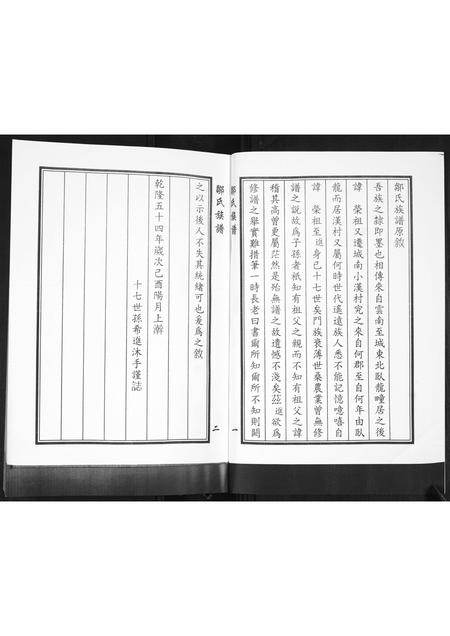 鄒氏族譜原敘
吾族之隸即墨也相傳來自雲南至城東北臥龍疃居之後
諱　榮祖又遷城南小漢村究之來自何郡至自何年由臥
龍而居漢村又屬何時世代遙遠族人悉不能記憶噫自
諱　榮祖至進身已十七世矣門族衰薄世桑農業曾無修
譜之說故為子孫者祇知有祖父之親而不知有祖父之諱
稽其高曾更屬茫然是殆無譜之故遺憾不淺矣茲進欲為
修譜之舉實難措筆一時長老曰書爾所知爾所不知則闕
鄒氏族譜
一
鄒氏族譜
二
之以示後人不失其統緒可也爰為之敘
乾隆五十四年歲次己酉陽月上澣
十七世孫希進沐手謹誌